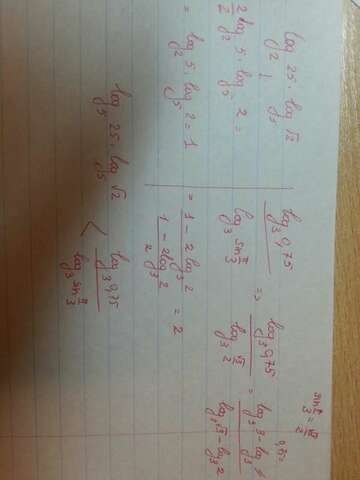 log₂ 25 · log₅ √2
2/2 log₂ 5 · log₅ 2 =
= log₂ 5 · log₅ 2 = 1
log₃ 0,75 / log₃ sin π/3 => log₃ 0,75 / log₃ √3/2 = log₃ 3 - log₃ 4 / log₃ √3 - log₃ 2
= 1 - 2 log₃ 2 / 1/2 - log₃ 2 = 2
sin π/3 = √3/2
0,75 =
log₅ 25 · log₅ √2 < log₃ 0,75 / log₃ sin π/3